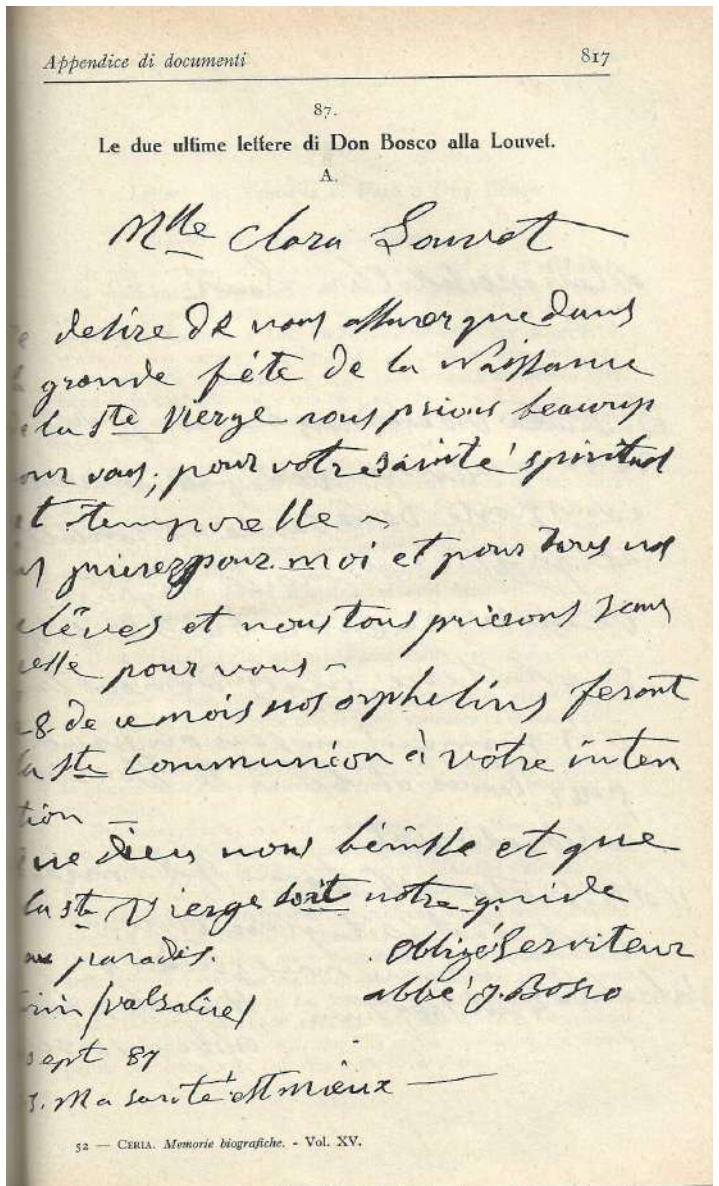 Appendice di documenti 817
87.
Le due ultime lettere di Don Bosco alla Louvet.
A.
Mlle Clara Louvet
desire de vous assurer que dans
grande fête de la Naissance
la Ste Vierge nous prions beaucup
our vous; pour votre sainté spirituel
et temporelle
prierez pour moi et pour tous nos
elêves et nous tous prierons sans
pour vous
8 de ce mois nos orphelins feront
la Ste Communion à votre inten
tion
que Dieu nous bénisse et que
la Ste Vierge soit notre guide
au paradis. Obligé Serviteur
abbé J. Bosco
(valsalice)
sept 87
S. Ma santé est mieux
52 — CERIA. Memorie biografiche. - Vol. XV.